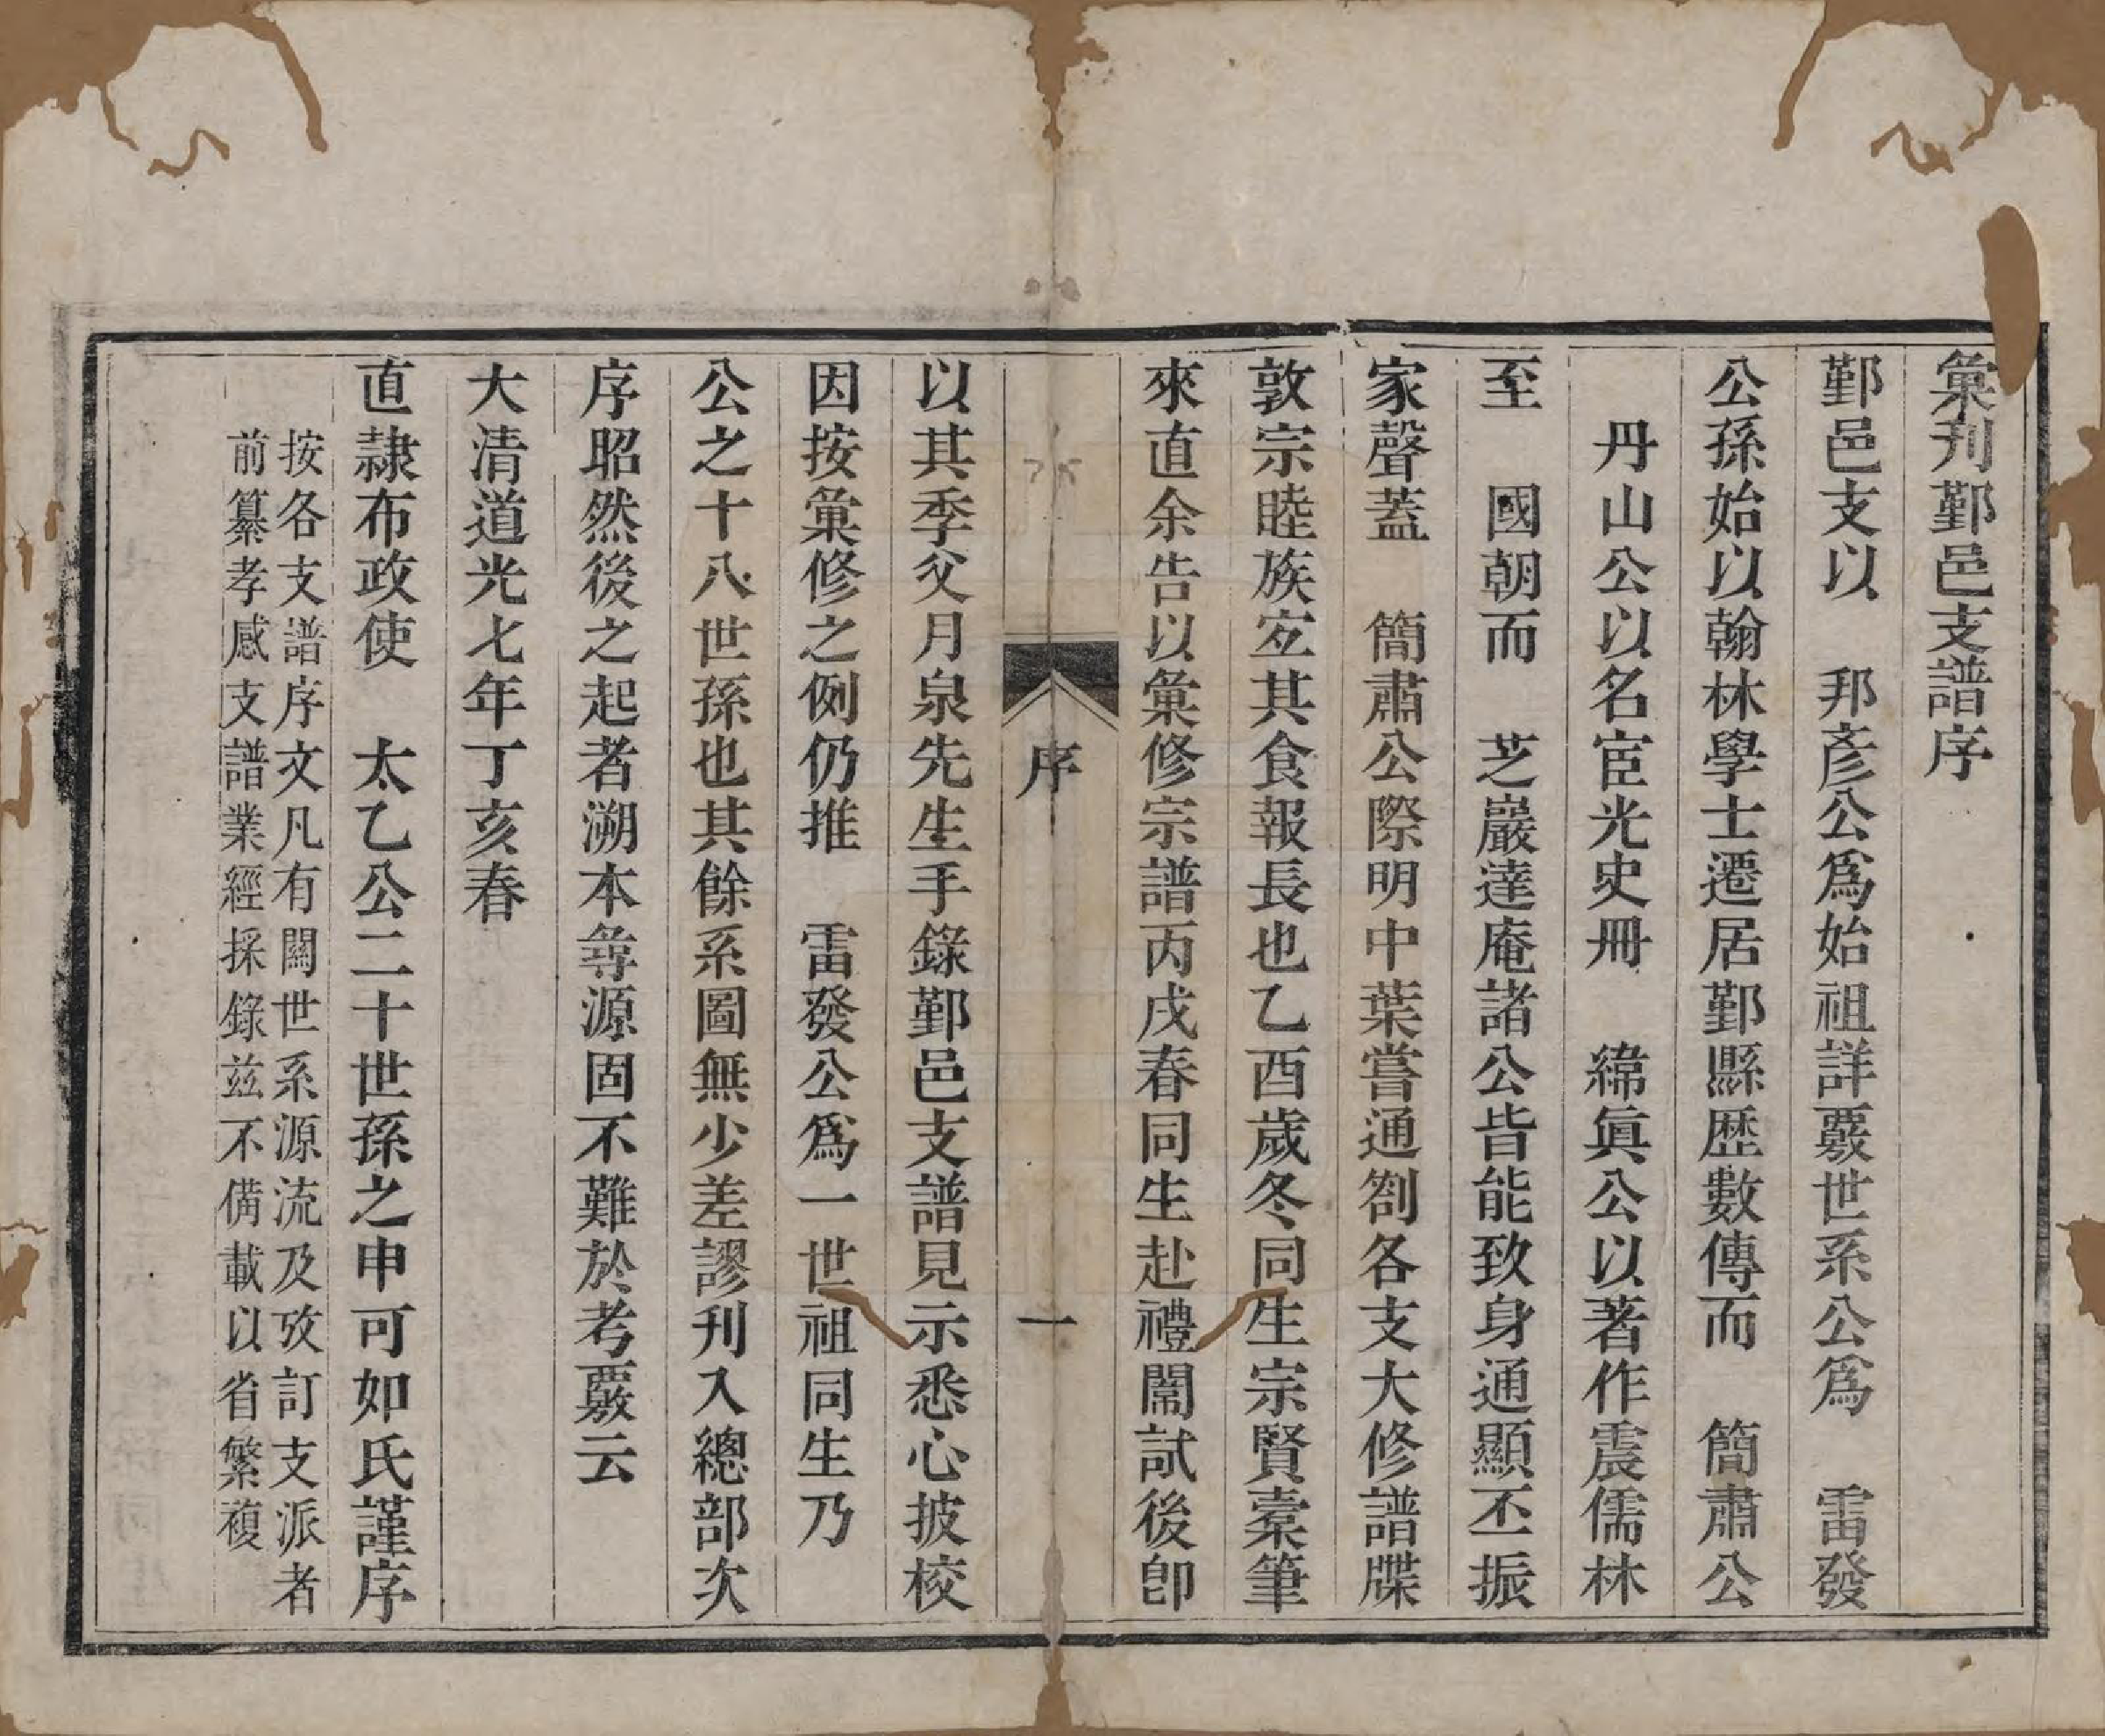 彙刋鄞邑支譜序
鄞邑支以　邦彥公爲始祖詳覈世系公爲　雷發
公孫始以翰林學士遷居鄞縣歴數傳而　簡肅公
　丹山公以名宦光史冊　緯眞公以著作震儒林
至　國朝而　芝巖達庵諸公皆能致身通顯丕振
家聲蓋　簡肅公際明中葉嘗通劄各支大修譜牒
敦宗睦族宐其食報長也乙酉歲冬同生宗賢橐筆
來直余告以彙修宗譜丙戌春同生赴禮闈試後卽
序
一
以其季父月泉先生手錄鄞邑支譜見示悉心披校
因按彙修之例仍推　雷發公爲一世祖同生乃
公之十八世孫也其餘系圖無少差謬刋入總部次
序昭然後之起者溯本尋源固不難於考覈云
大清道光七年丁亥春
直隷布政使　太乙公二十世孫之申可如氏謹序
按各支譜序文凡有關世系源流及攷訂支派者
前纂孝感支譜業經採錄兹不備載以省繁複